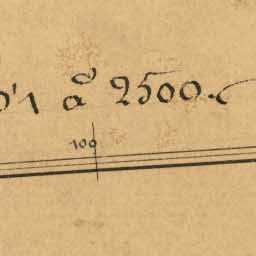 0'1 a 2500.
100